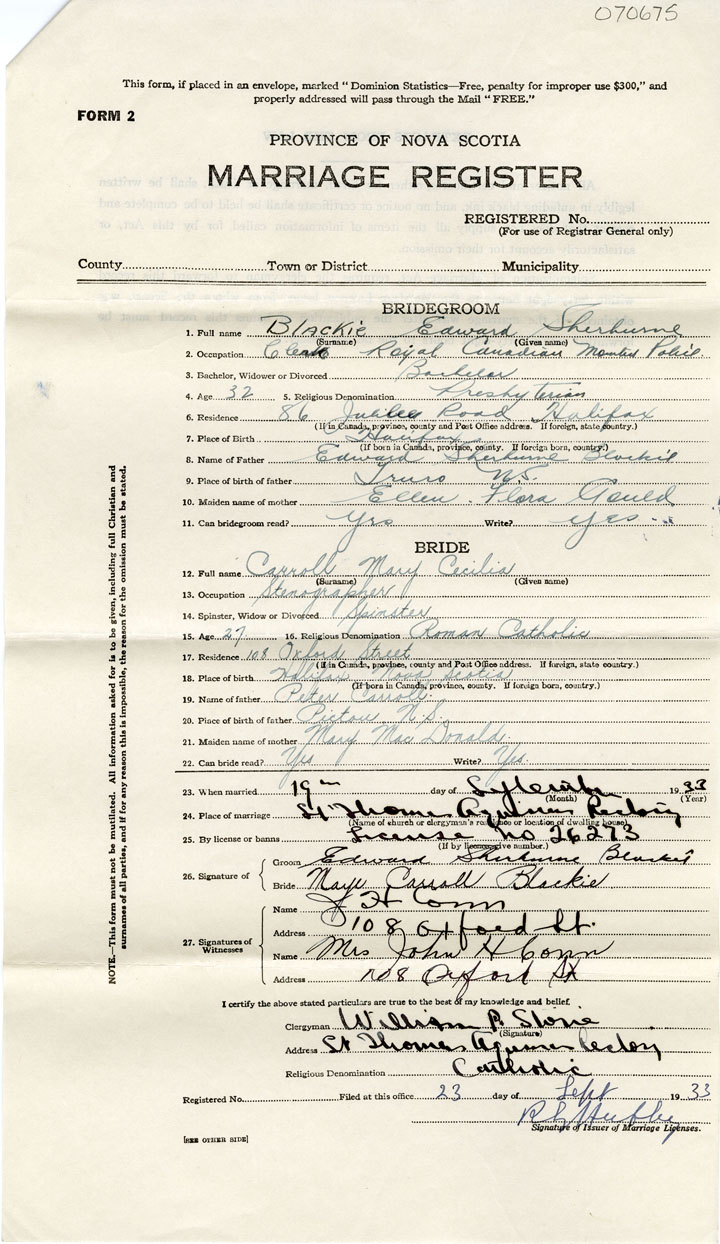 070675
This form, if placed in an envelope, marked "Dominion Statistics—Free, penalty for improper use $300," and
properly addressed will pass through the Mail "FREE."
FORM 2
PROVINCE OF NOVA SCOTIA
MARRIAGE REGISTER
REGISTERED No.
(For use of Registrar General only)
County Town or District Municipality
BRIDEGROOM
1. Full name Blackie Edward Sherburne
(Surname) (Given name)
2. Occupation Clerk Royal Canadian Mounted Police
3. Bachelor, Widower or Divorced Bachelor
4. Age 32 5. Religious Denomination Presbyterian
6. Residence 86 Jubilee Road Halifax
(If in Canada, province, county and Post Office address. If foreign, state country.)
7. Place of Birth Halifax
(If born in Canada, province, county. If foreign born, country.)
8. Name of Father Edward Sherburne Blackie
9. Place of birth of father Truro N.S.
10. Maiden name of mother Ellen Flora Gould
11. Can bridegroom read? Yes Write? yes
BRIDE
12. Full name Carroll Mary Cecilia
(Surname) (Given name)
13. Occupation Stenographer
14. Spinster, Widow or Divorced Spinster
15. Age 27 16. Religious Denomination Roman Catholic
17. Residence 108 Oxford Street
(If in Canada, province, county and Post Office address. If foreign, state country.)
18. Place of birth Halifax Nova Scotia
(If born in Canada, province, county. If foreign born, country.)
19. Name of father Peter Carroll
20. Place of birth of father Pictou N.S.
21. Maiden name of mother Mary MacDonald.
22. Can bride read? Yes Write? Yes.
23. When married 19th day of September 1933
(Month) (Year)
24. Place of marriage St Thomas Aquinas Rectory
(Name of church or clergyman's residence or location of dwelling house)
25. By license or banns License no 26273
(If by license give number.)
26. Signature of
Groom Edward Sherburne Blackie
Bride Mary Carroll Blackie
27. Signatures of Witnesses
Name J H Conn
Address 108 Oxford St.
Name Mrs John H Conn
Address 108 Oxford St
I certify the above stated particulars are true to the best of my knowledge and belief.
Clergyman William B
(Signature)
Address St Thomas Aquinas Rectory
Religious Denomination Catholic
Registered No. Filed at this office 23 day of Sept 1933
Signature of Issuer of Marriage Licenses.
[SEE OTHER SIDE]
NOTE.—This form must not be mutilated. All information asked for is to be given, including full Christian and
surnames of all parties, and if for any reason this is impossible, the reason for the omission must be stated.